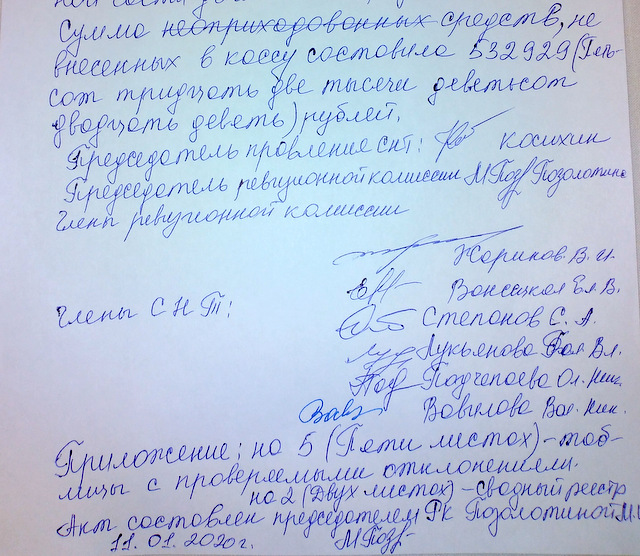 Сумма неоприходованных средств, не
внесенных в кассу составила 532929 (Пять-
сот тридцать две тысячи девятьсот
двадцать девять) рублей.
Председатель провление снт: Косихин
Председатель ревизионной комиссии МПоз Позолотина
Члены ревизионной комиссии
Жаринов В. И.
Члены СНТ: Ел. В.
Степанов С. А.
Лукьянова Вл.
Под Ол. Ник.
Вавилова Вал. Ник.
Приложение: на 5 (Пяти листах) - таб-
лицы с проверяемыми отклонениями.
на 2 (Двух листах) - сводный реестр
Акт составлен председателем РК Позолотиной М.
11.01.2020г. МПоз